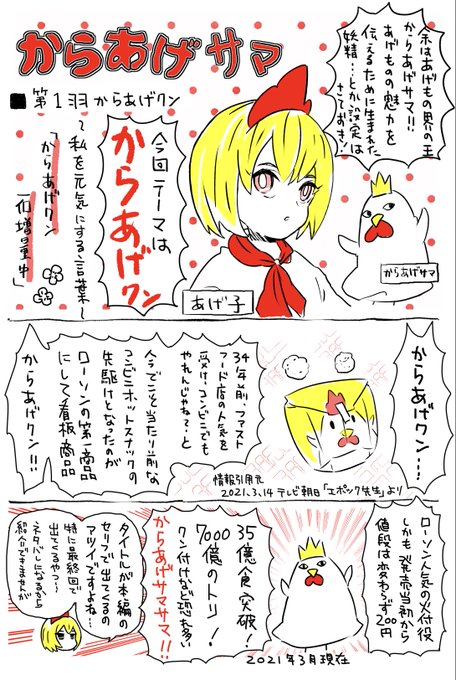 からあげサマ
■第1羽 からあげクン
余はあげもの界の王
からあげサマ!!
あげものの魅力を
伝えるために生まれた
妖精…とか設定は
さておき!
今回テーマは
からあげクン
〜私を元気にする言葉〜
「からあげクン
一個増量中」
あげ子
からあげサマ
からあげクン…
34年前、ファスト
フード店の人気を
受け、コンビニでも
やれんじゃね?と
今でこそ当たり前な
コンビニホットスナックの
先駆けとなったのが
ローソンの第一商品
にして看板商品
からあげクン!!
情報引用元
2021.3.14 テレビ朝日「エポック先生」より
ローソン人気の火付役
しかも発売当初から
値段は変わらず200円
35億食突破!
7000億のトリ!
クン付けなど恐れ多い
からあげサマサマ!!
2021年3月現在
タイトルが本編の
セリフで出てくるの
アツイですよね…
特に最終回で
出てくるやつ〜
ネタバレになるから
紹介できませんが